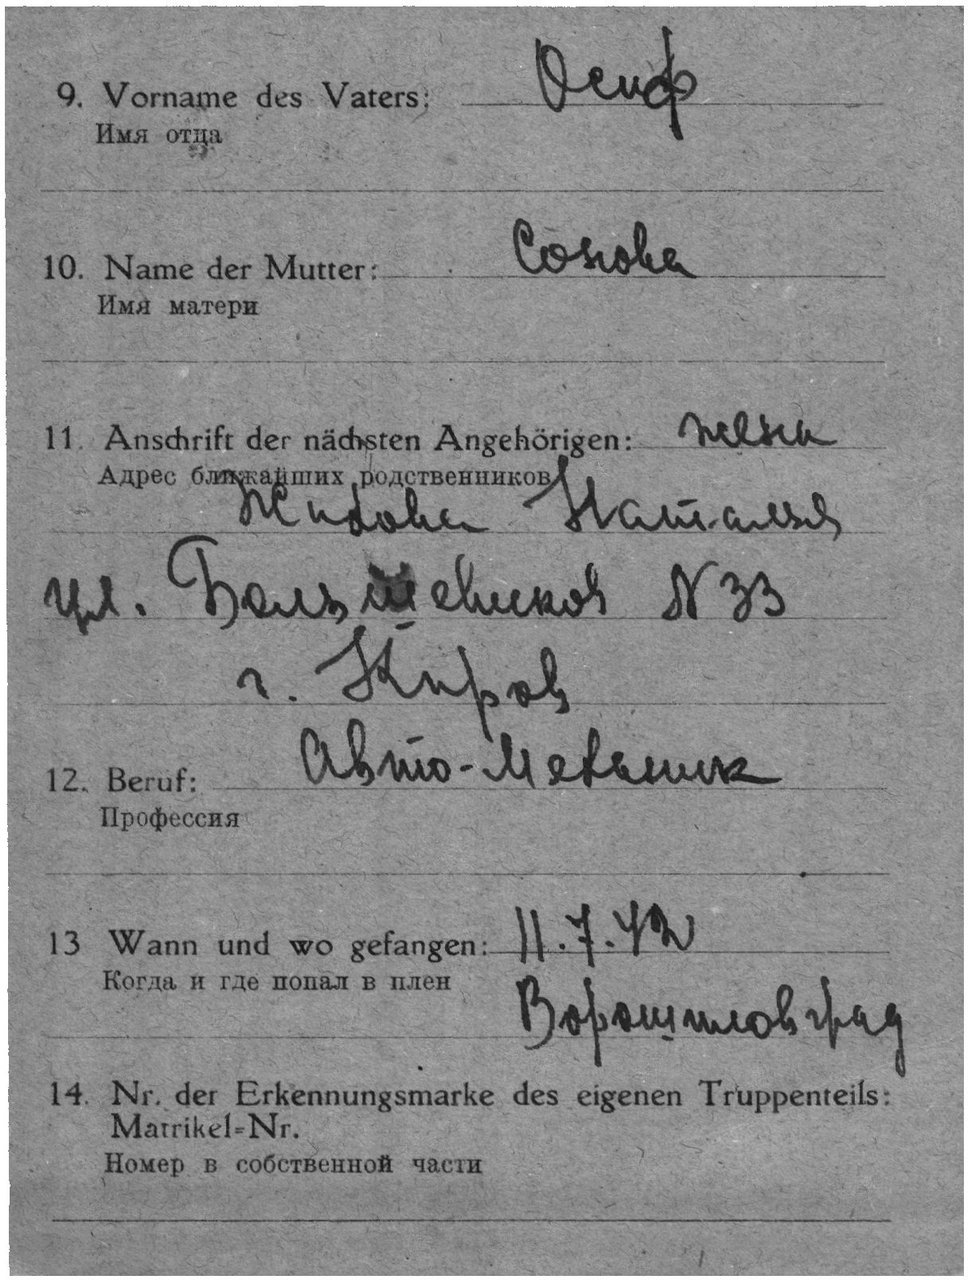 9. Vorname des Vaters: Осиф
Имя отца
10. Name der Mutter: Сонова
Имя матери
11. Anschrift der nächsten Angehörigen: жена
Адрес ближайших родственников
Наталья
ул. Большевиков N 33
г. Киров
12. Beruf: Авто-Механик
Профессия
13 Wann und wo gefangen: 11.7.42
Когда и где попал в плен
Ворошиловград
14. Nr. der Erkennungsmarke des eigenen Truppenteils:
Matrikel=Nr.
Номер в собственной части